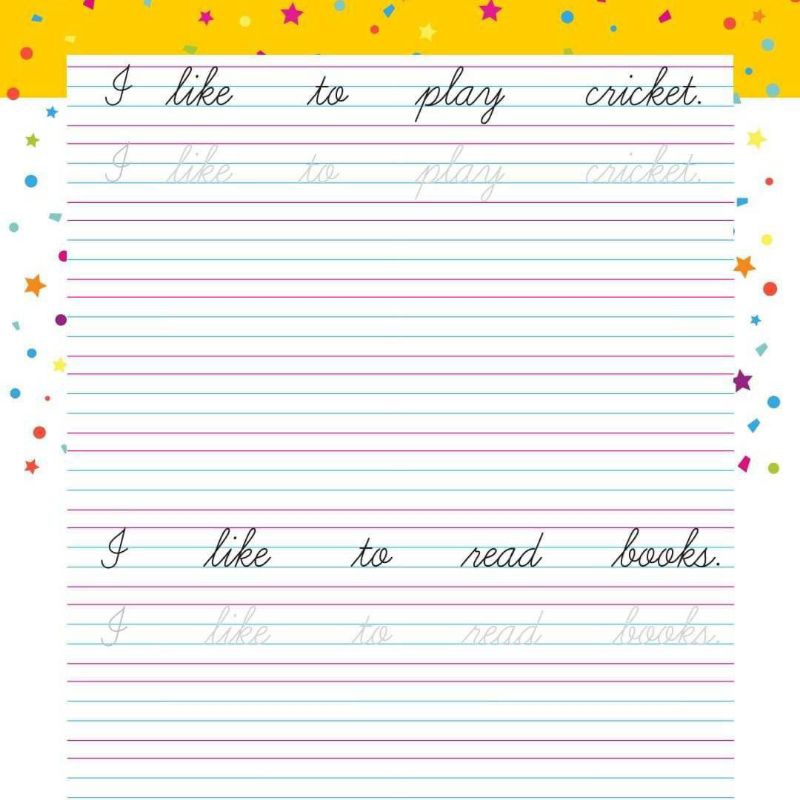 I like to play cricket.
I like to play cricket.
I like to read books.
I like to read books.